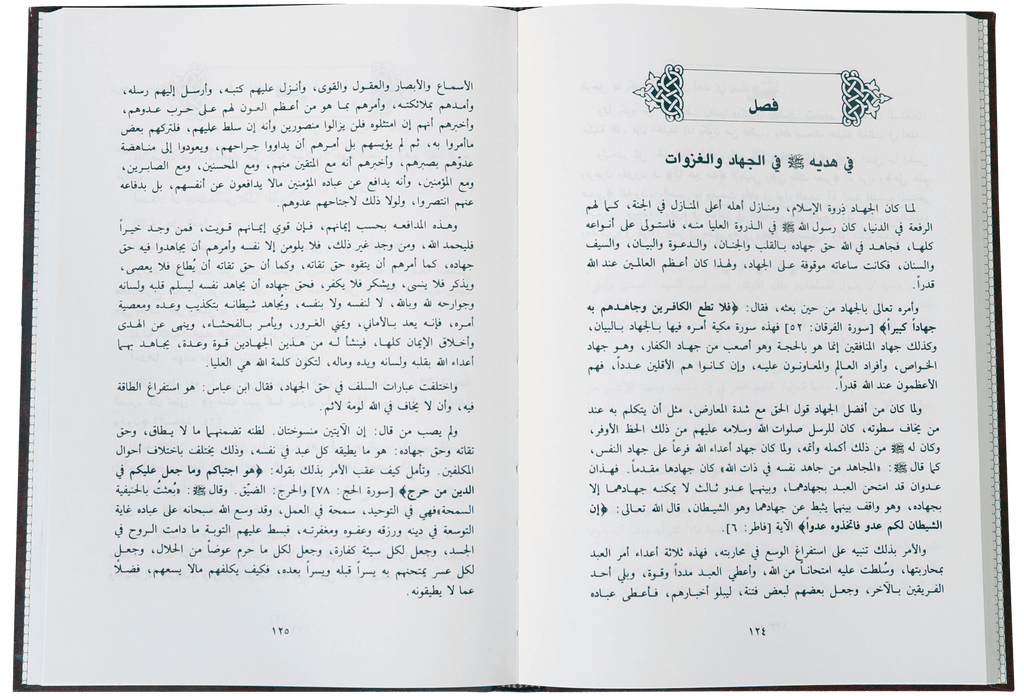 فصل
في هديه ﷺ في الجهاد والغزوات
لما كان الجهاد ذروة الإسلام، ومنازل أهله أعلى المنازل في الجنة، كما لهم
الرفعة في الدنيا، كان رسول الله ﷺ في الذروة العليا منه، فاستولى على أنواعه
كلها، فجاهد في الله حق جهاده بالقلب والجنان، والدعوة والبيان، والسيف
والسنان، فكانت ساعاته موقوفة على الجهاد، ولهذا كان أعظم العالمين عند الله
قدراً.
وأمره تعالى بالجهاد من حين بعثه، فقال: ﴿فلا تطع الكافرين وجاهدهم به
جهاداً كبيراً﴾ [سورة الفرقان: ٥٢] فهذه سورة مكية أمره فيها بالجهاد بالبيان،
وكذلك جهاد المنافقين إنما هو بالحجة وهو أصعب من جهاد الكفار، وهو جهاد
الخواص، وأفراد العالم والمعاونون عليه، وإن كانوا هم الأقلين عدداً، فهم
الأعظمون عند الله قدراً.
ولما كان من أفضل الجهاد قول الحق مع شدة المعارض، مثل أن يتكلم به عند
من يخاف سطوته، كان للرسل صلوات الله وسلامه عليهم من ذلك الحظ الأوفر،
وكان له ﷺ من ذلك أكمله وأتمه، ولما كان جهاد أعداء الله فرعاً على جهاد النفس،
كما قال ﷺ: «المجاهد من جاهد نفسه في ذات الله» كان جهادها مقدماً. فهذان
عدوان قد امتحن العبد بجهادهما، وبينهما عدو ثالث لا يمكنه جهادهما إلا
بجهاده، وهو واقف بينهما يثبط عن جهادهما وهو الشيطان، قال الله تعالى: ﴿إن
الشيطان لكم عدو فاتخذوه عدواً﴾ الآية [فاطر: ٦].
والأمر بذلك تنبيه على استفراغ الوسع في محاربته، فهذه ثلاثة أعداء أمر العبد
بمحاربتها، وسُلطت عليه امتحاناً من الله، وأعطي العبد مدداً وقوة، وبلي أحد
الفريقين بالآخر، وجعل بعضهم لبعض فتنة، ليبلو أخبارهم، فأعطى عباده
١٢٤
الأسماع والأبصار والعقول والقوى، وأنزل عليهم كتبه، وأرسل إليهم رسله،
وأمدهم بملائكته، وأمرهم بما هو من أعظم العون لهم على حرب عدوهم،
وأخبرهم أنهم إن امتثلوه فلن يزالوا منصورين وأنه إن سلط عليهم، فلتركهم بعض
ماأمروا به، ثم لم يؤيسهم بل أمرهم أن يداووا جراحهم، ويعودوا إلى مناهضة
عدوّهم بصبرهم، وأخبرهم أنه مع المتقين منهم، ومع المحسنين، ومع الصابرين،
ومع المؤمنين، وأنه يدافع عن عباده المؤمنين مالا يدافعون عن أنفسهم، بل بدفاعه
عنهم انتصروا، ولولا ذلك لاجتاحهم عدوهم.
وهذه المدافعه بحسب إيمانهم، فإن قوي إيمانهم قويت، فمن وجد خيراً
فليحمد الله، ومن وجد غير ذلك، فلا يلومن إلا نفسه وأمرهم أن يجاهدوا فيه حق
جهاده، كما أمرهم أن يتقوه حق تقاته، وكما أن حق تقاته أن يُطاع فلا يعصى،
ويذكر فلا ينسى، ويشكر فلا يكفر، فحق جهاده أن يجاهد نفسه ليسلم قلبه ولسانه
وجوارحه لله وبالله، لا لنفسه ولا بنفسه، ويُجاهد شيطانه بتكذيب وعده ومعصية
أمره، فإنه يعد بالأماني، ويمني الغرور، ويأمر بالفحشاء، وينهى عن الهدى
وأخلاق الإيمان كلها، فينشأ له من هذين الجهادين قوة وعدة، يجاهد بهما
أعداء الله بقلبه ولسانه ويده وماله، لتكون كلمة الله هي العليا.
واختلفت عبارات السلف في حق الجهاد، فقال ابن عباس: هو استفراغ الطاقة
فيه، وأن لا يخاف في الله لومة لائم.
ولم يصب من قال: إن الآيتين منسوختان. لظنه تضمنهما ما لا يطاق، وحق
تقاته وحق جهاده: هو ما يطيقه كل عبد في نفسه، وذلك يختلف باختلاف أحوال
المكلفين. وتأمل كيف عقب الأمر بذلك بقوله: ﴿هو اجتباكم وما جعل عليكم في
الدين من حرج﴾ [سورة الحج: ٧٨] والحرج: الضيّق. وقال ﷺ: «بُعثتُ بالحنيفية
السمحة»فهي في التوحيد، سمحة في العمل، وقد وسع الله سبحانه على عباده غاية
التوسعة في دينه ورزقه وعفوه ومغفرته، فبسط عليهم التوبة ما دامت الروح في
الجسد، وجعل لكل سيئة كفارة، وجعل لكل ما حرم عوضاً من الحلال، وجعل
لكل عسر يمتحنهم به يسراً قبله ويسراً بعده، فكيف يكلفهم مالا يسعهم، فضلًا
عما لا يطيقونه.
١٢٥